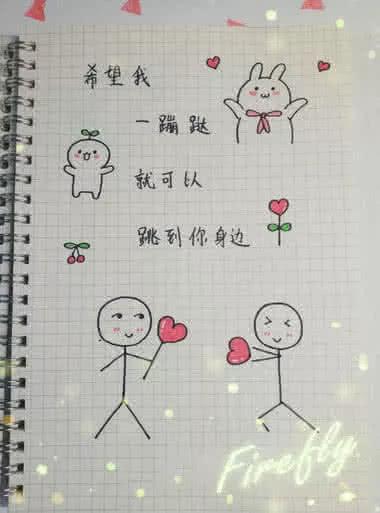 希望我
一蹦跶
就可以
跳到你身边
Firefly